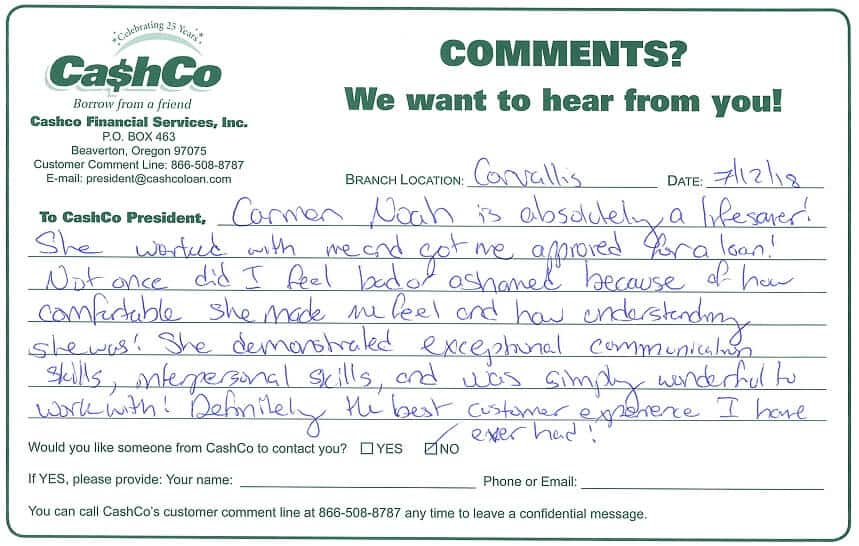 Celebrating 25 Years
Ca$hCo
Borrow from a friend
Cashco Financial Services, Inc.
P.O. BOX 463
Beaverton, Oregon 97075
Customer Comment Line: 866-508-8787
E-mail: president@cashcoloan.com
COMMENTS?
We want to hear from you!
BRANCH LOCATION: Corvallis DATE: 7/12/18
To CashCo President, Carmen Noah is absolutely a lifesaver!
She worked with me and got me approved for a loan!
Not once did I feel bad or ashamed because of how
comfortable she made me feel and how understanding
she was! She demonstrated exceptional communication
skills, interpersonal skills, and was simply wonderful to
work with! Definitely the best customer experience I have
ever had!
Would you like someone from CashCo to contact you? ☐ YES ☑ NO
If YES, please provide: Your name: Phone or Email:
You can call CashCo's customer comment line at 866-508-8787 any time to leave a confidential message.